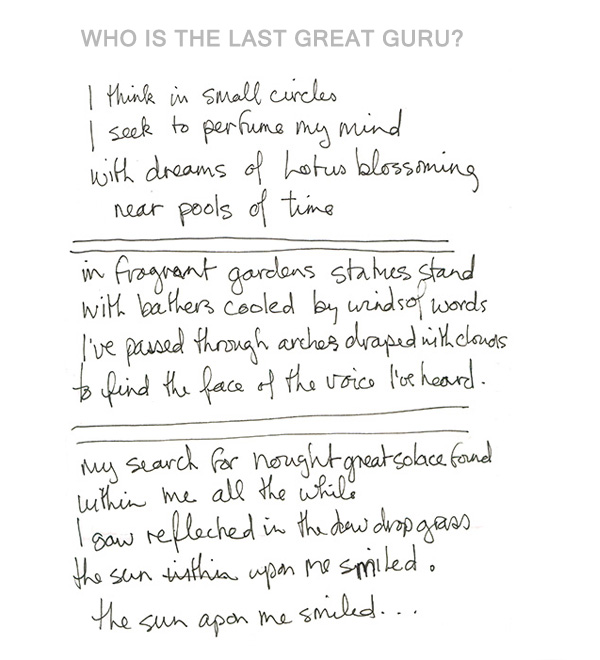 WHO IS THE LAST GREAT GURU?
I think in small circles
I seek to perfume my mind
with dreams of Lotus blossoming
near pools of time
in fragrant gardens statues stand
with bathers cooled by winds of words
I've passed through arches draped with clouds
to find the face of the voice I've heard.
my search for nought great solace found
within me all the while
I saw reflected in the dew drop grass
the sun within upon me smiled.
the sun apon me smiled...